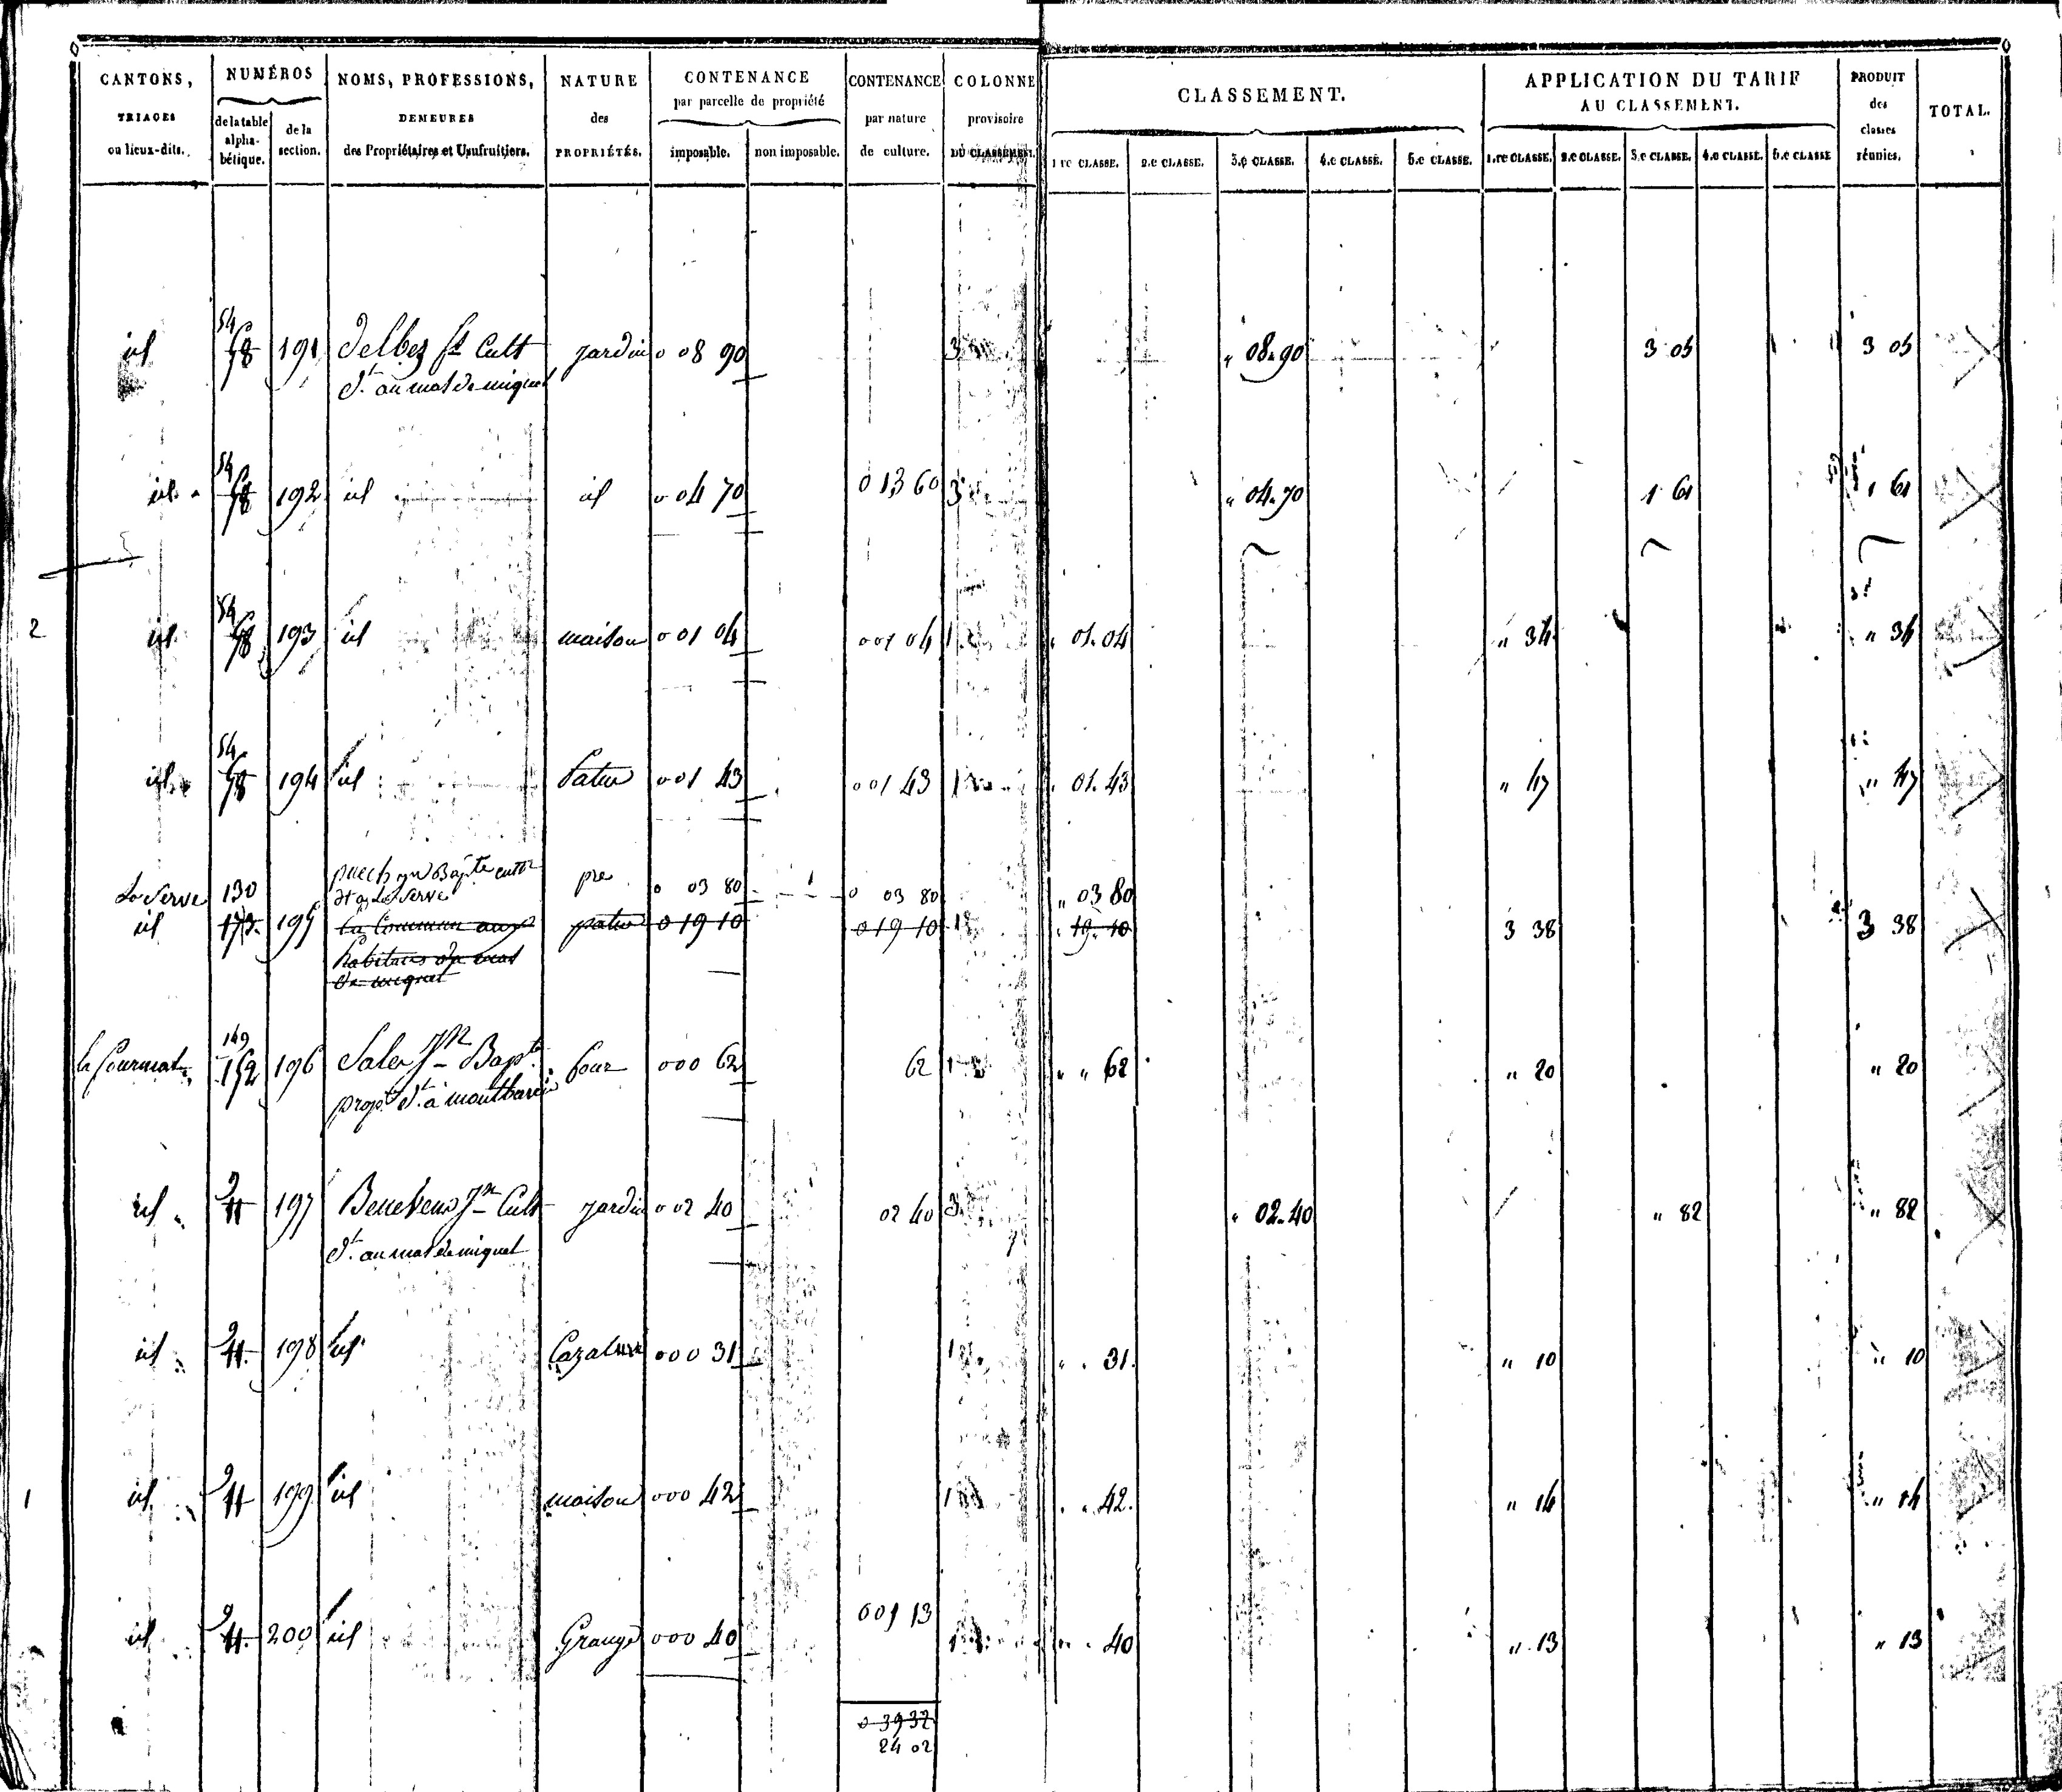 CANTONS, TRIAGES ou lieux-dits.
NUMÉROS
de la table alpha-bétique.
de la section.
NOMS, PROFESSIONS, DEMEURES des Propriétaires et Usufruitiers.
NATURE des PROPRIÉTÉS.
CONTENANCE par parcelle de propriété
imposable.
non imposable.
CONTENANCE par nature de culture.
COLONNE provisoire DU CLASSEMENT.
CLASSEMENT.
1re CLASSE. 2.e CLASSE. 3.e CLASSE. 4.e CLASSE. 5.e CLASSE.
APPLICATION DU TARIF AU CLASSEMENT.
1.re CLASSE. 2.e CLASSE. 3.e CLASSE. 4.e CLASSE. 5.e CLASSE
PRODUIT des classes réunies.
TOTAL.
54
id 58 191 Delbez Cult jardin 0 08 90 3 " 08.90 3 05 3 05
dt au mas de miquel
54
id 58 192 id id 0 04 70 0 13 60 3 " 04.70 1 61 1 61
54
2 id 58 193 id maison 0 01 04 0 01 04 1 01.04 " 34 " 34
54
id 58 194 id Patus 0 01 43 0 01 43 1 01.43 " 47 " 47
La Serve 130 puech Bapte cultr pre 0 03 80 0 03 80 " 03 80
dt a La Serve
id 173 195 La Commune aux patus 0 19 10 0 19 10 1 19.10 3 38 3 38
habitans du mas
de miquel
149
152 196 Sales Jn Bapte four 0 00 62 62 1 " " 62 " 20 " 20
propre dt à
9
id 11 197 Jn Cult jardin 0 02 40 02 40 3 " 02.40 " 82 " 82
dt au mas de miquel
9
id 11 198 id 0 00 31 1 " " 31 " 10 " 10
9
1 id 11 199 id maison 0 00 42 1 " " 42 " 14 " 14
9
id 11 200 id Grange 0 00 40 0 01 13 1 " " 40 " 13 " 13
0 39 32
24 02